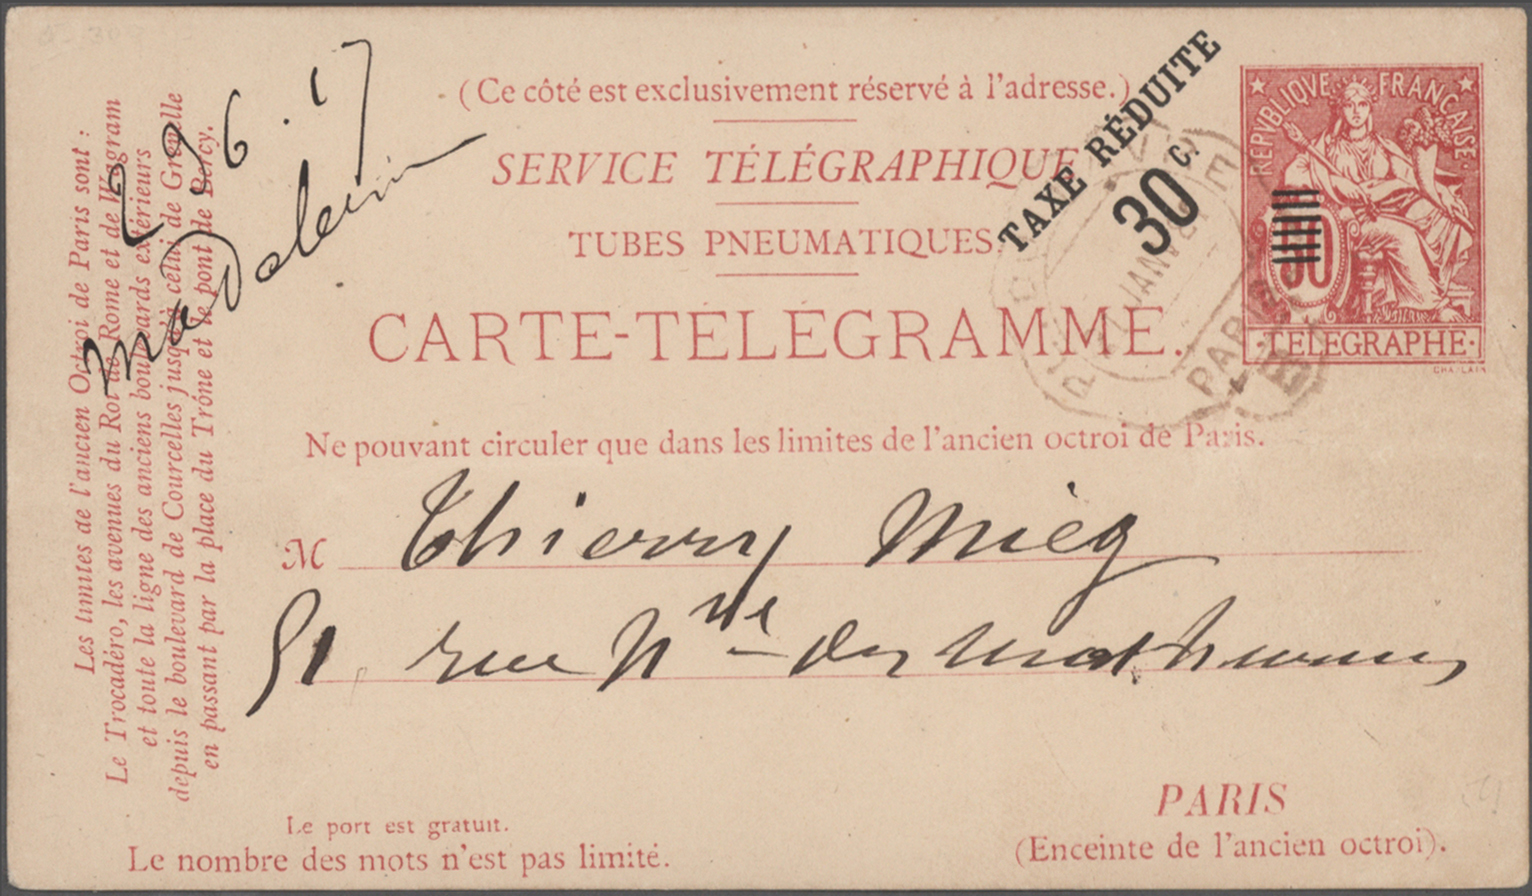 (Ce côté est exclusivement réservé à l'adresse.)
SERVICE TÉLÉGRAPHIQUE
TUBES PNEUMATIQUES
CARTE-TÉLÉGRAMME.
Ne pouvant circuler que dans les limites de l'ancien octroi de Paris.
TAXE RÉDUITE
30 c.
REPVBLIQVE FRANÇAISE
50
TELEGRAPHE
CHAPLAIN
JANV
PARIS
M Thierry Mieg
51 rue Nve des Mathurins
PARIS
(Enceinte de l'ancien octroi).
Le port est gratuit.
Le nombre des mots n'est pas limité.
Les limites de l'ancien Octroi de Paris sont :
Le Trocadéro, les avenues du Roi de Rome et de Wagram
et toute la ligne des anciens boulevards extérieurs
depuis le boulevard de Courcelles jusqu'à celui de Grenelle
en passant par la place du Trône et le pont de Bercy.